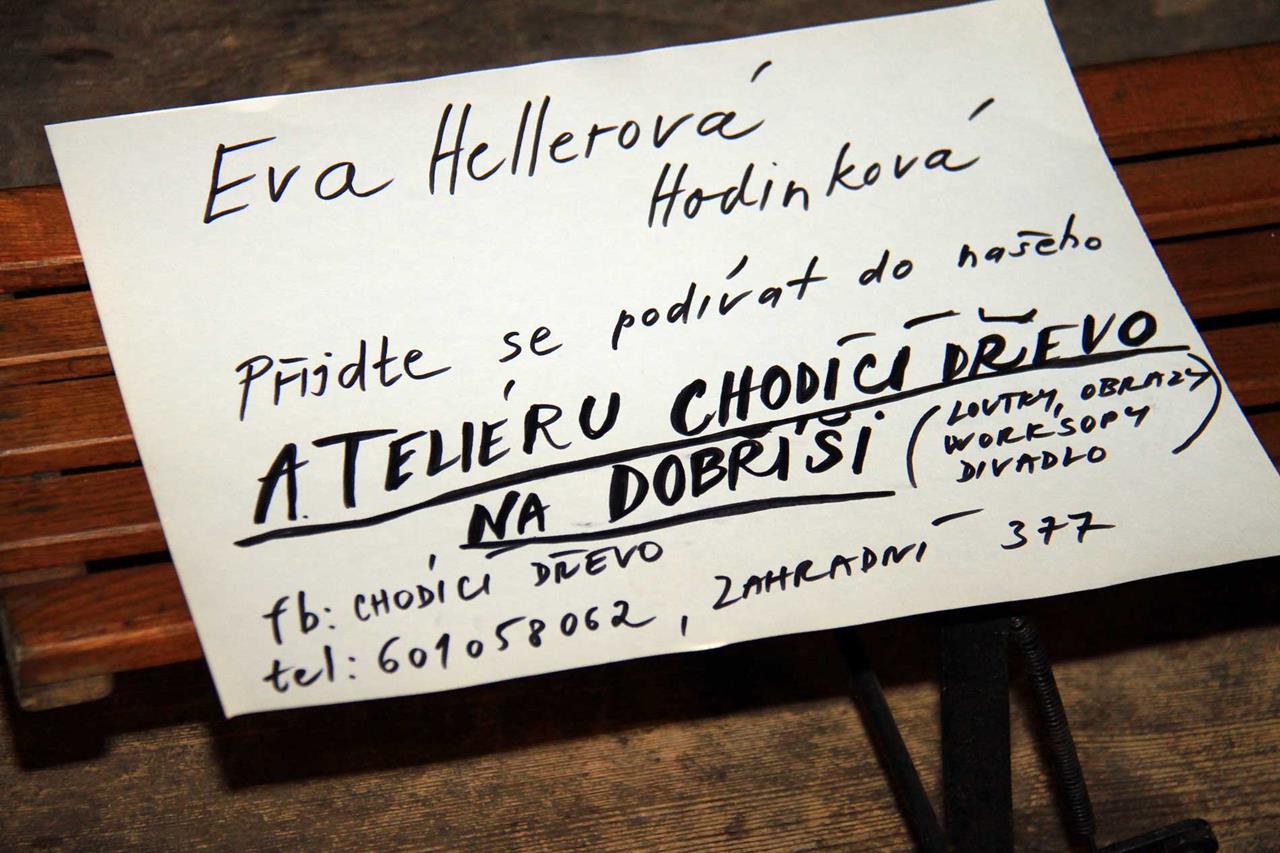 Eva Hellerová
Hodinková
Přijdte se podívat do našeho
ATELIÉRU CHODÍCÍ DŘEVO
NA DOBŘÍŠI (LOUTKY, OBRAZY
WORKSOPY
DIVADLO)
fb: CHODÍCÍ DŘEVO
tel: 601058062, ZAHRADNÍ 377